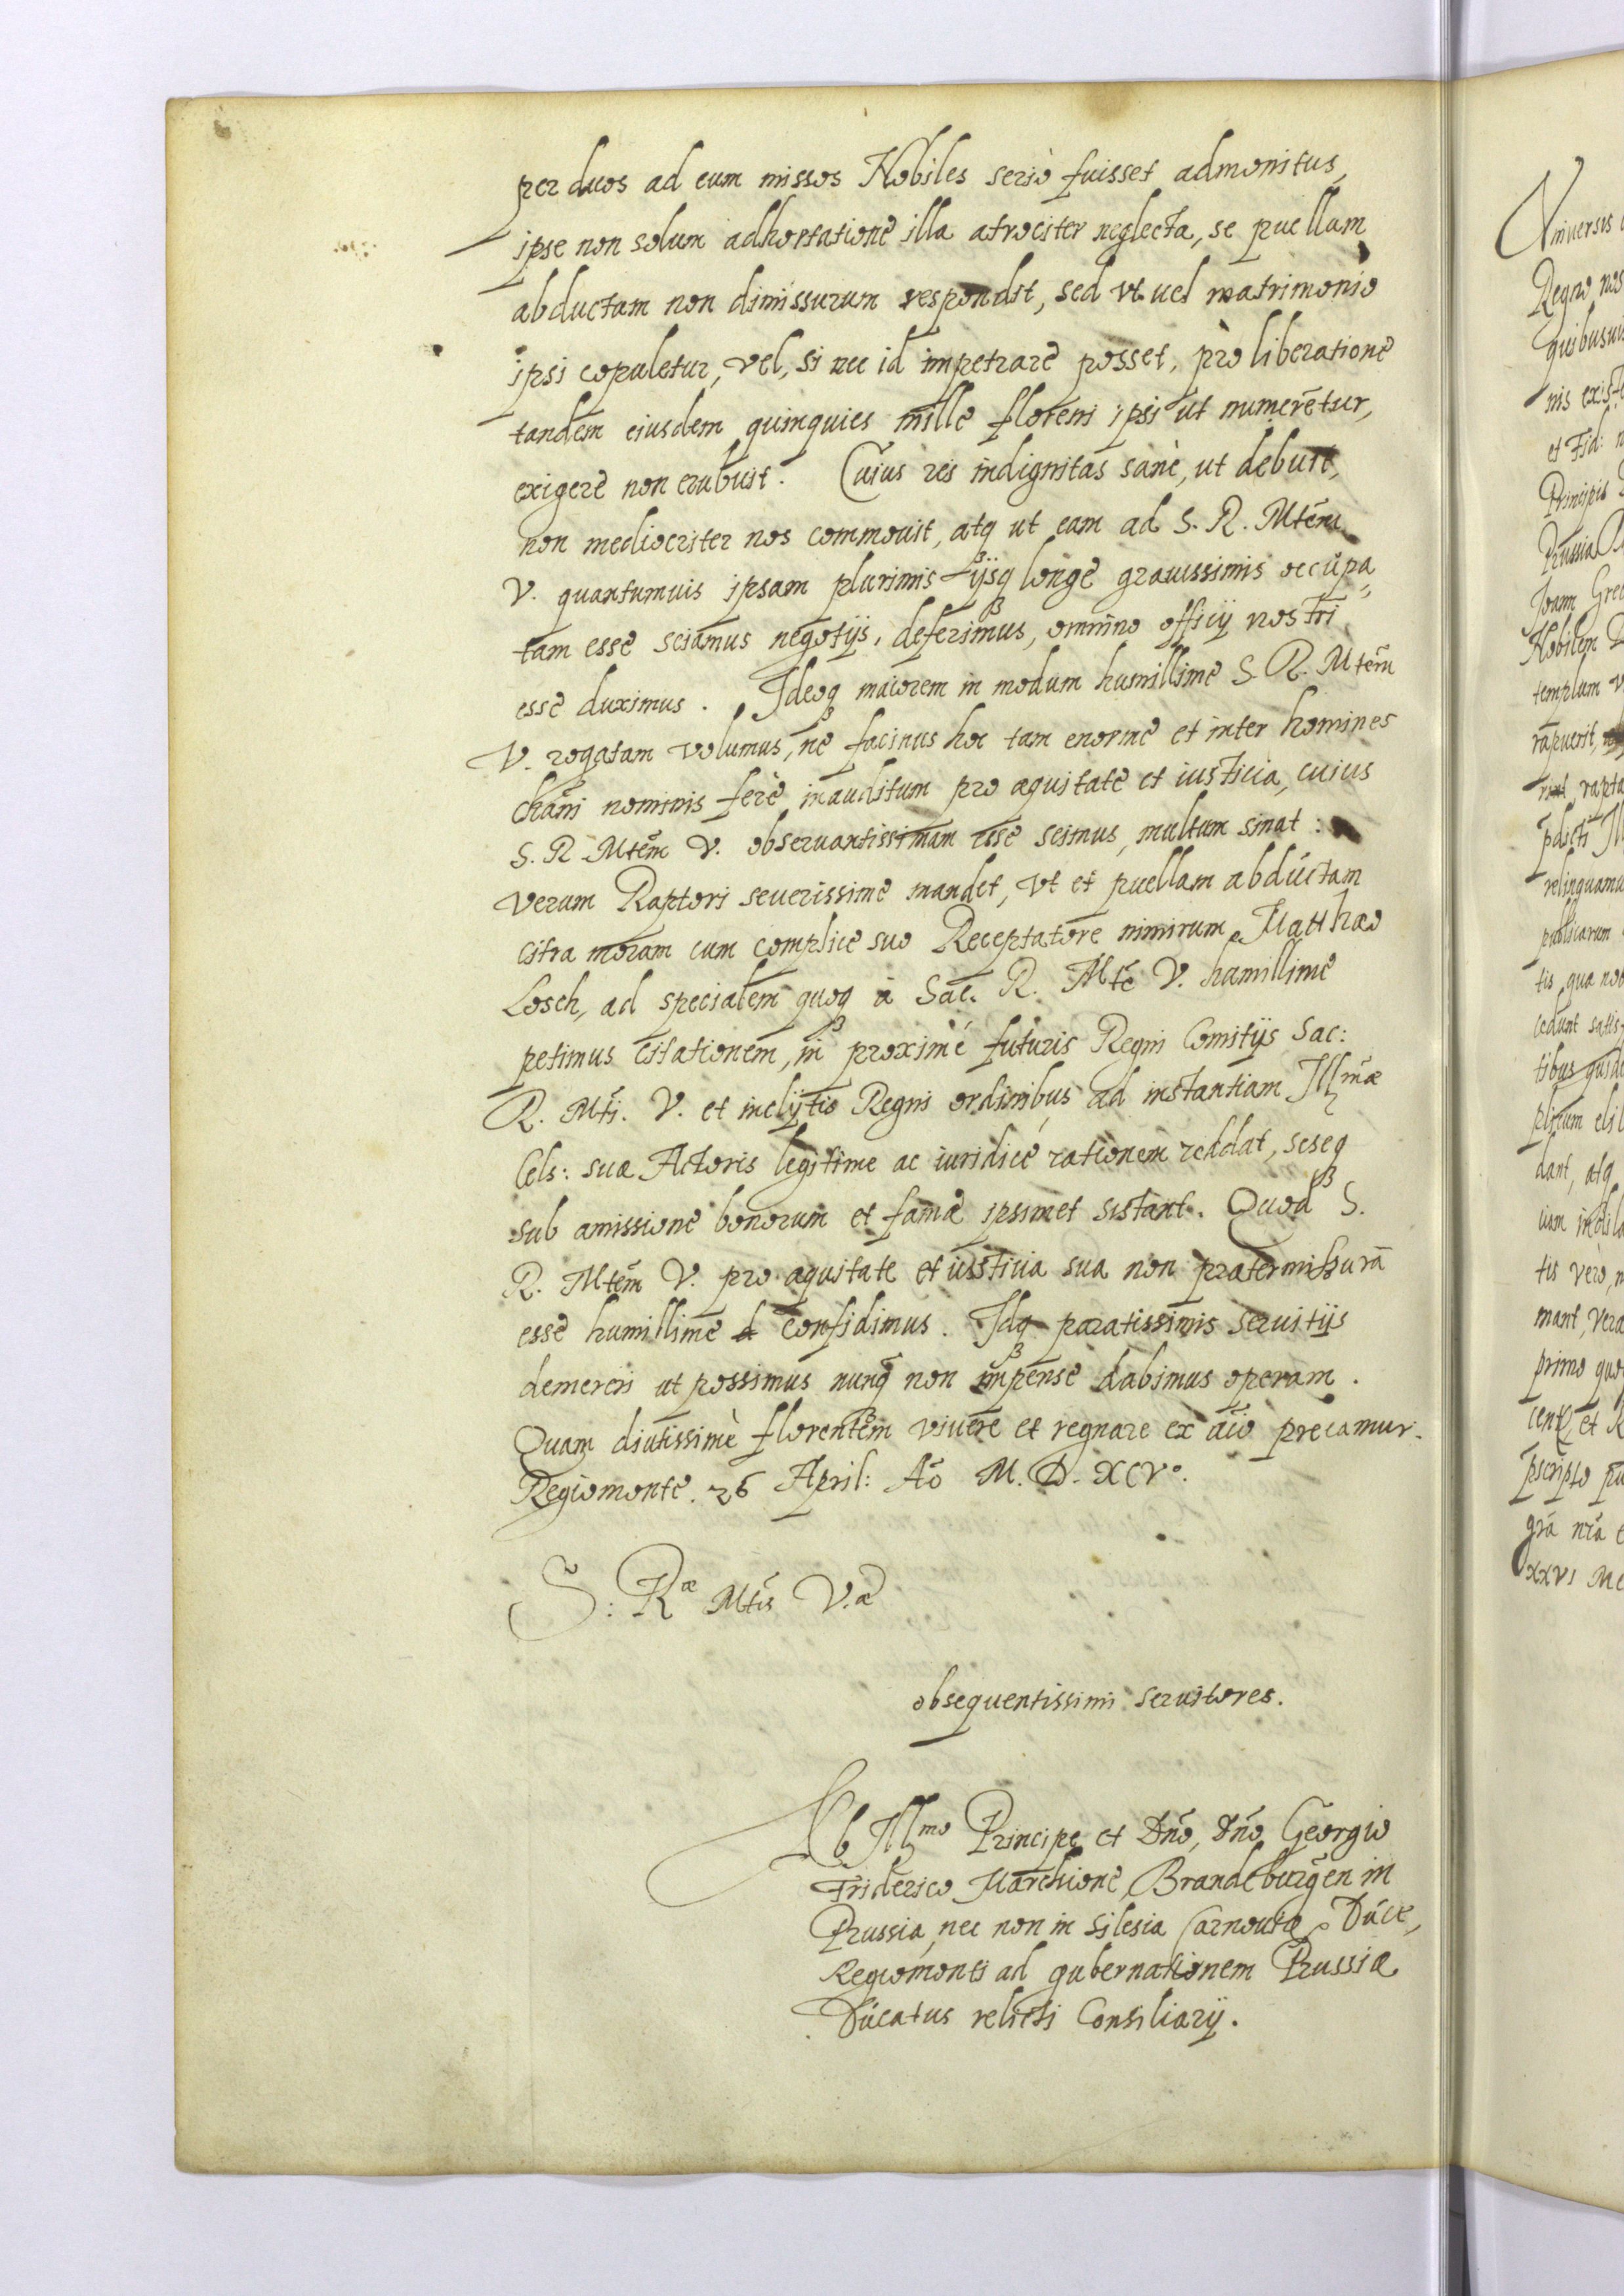 per duos ad eum missos Nobiles seriò fuisset admonitus,
ipse non solum adhortatione illa atrociter neglecta, se puellam
abductam non dimissurum respondit, sed vt uel matrimonio
ipsi copuletur, vel, si nec id impetrare posset, pro liberatione
tandem eiusdem quinquies mille floreni ipsi ut numerētur,
exigere non erubuit. Cuius rei indignitas sanè, ut debuit,
non mediocriter nos commouit, atq ut eam ad S. R. Mtēm
V. quantumuis ipsam plurimis ijsq longe grauissimis occupa„
tam esse sciamus negotijs, deferimus, omnino officij nostri
esse duximus. Ideoq maiorem in modum humillime S. R. Mtēm
V. rogatam volumus, ne facinus hoc tam enorme et inter homines
chāni nominis ferè inauditum pro æquitate et iusticia, cuius
S. R. Mtēm V. obseruantissimam esse scimus, multum sinat:
verum Raptori seuerissime mandet, vt et puellam abductam
citra moram cum complice suo Receptatore nimirum Matthæo
Losch, ad specialem quoq à Sac. R. Mtē V. humillime
petimus citationem, in proximè futuris Regni Comitijs Sac:
R. Mti. V. et inclytis Regni ordinibus ad instantiam Illmæ
Cels: suæ Actoris legitime ac iuridicè rationem reddat, seseq
sub amissione bonorum et famæ ipsimet sistant. Quod S.
R. Mtēm V. pro æquitate et iusticia sua non prætermissurā
esse humillime confidimus. Idq paratissimis seruitijs
demereri ut possimus nunq̄ non impense dabimus operam.
Quam diutissimè florentem viuere et regnare ex aīo precamur.
Regiomonte. 26 April: Aō M. D. XCVo.
S: Ræ Mtis V.æ
obsequentissimi seruitores.
Ab Illmo Principe et Dnō, Dnō Georgio
Friderico Marchione Brandeburgen in
Prussia, nec non in Silesia Carnouiæ Duce,
Regiomonti ad gubernationem Prussiæ
Ducatus relicti Consiliarij.
Vniuersis
Regno nos
quibusuis
nis
et Fid: n
Principis
Prussia
Joam
Nobilem
templum v
rapuerit,
rapta
relinquamu
publicarum
tis qua
cedunt satis
tibus
plicum
dant, atq
tis verò,
mant, vera
primo quo
et
grā nrā e
XXVI